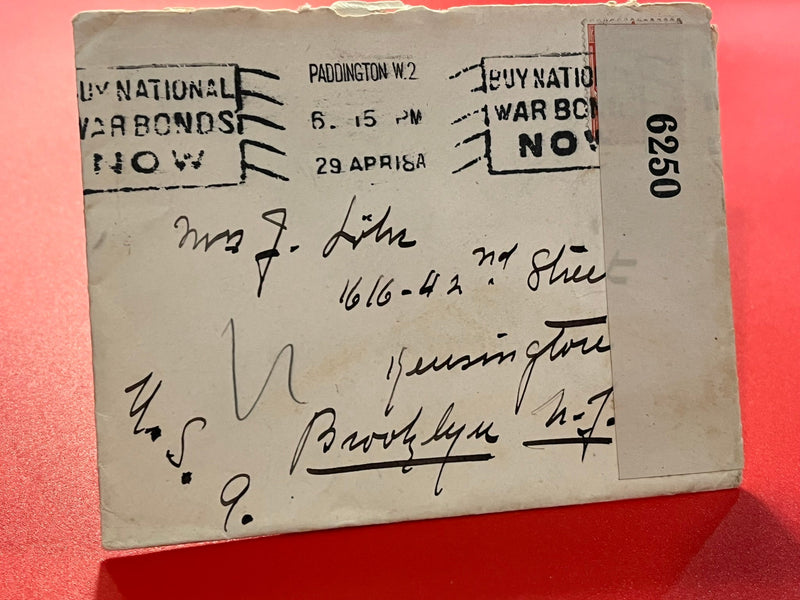 BUY NATIONAL
WAR BONDS
NOW
PADDINGTON W.2
6. 15 PM
29 APR 18A
BUY NATIO
WAR BON
NOW
6250
Mrs J. Löhr
1616-42nd Street
Kensington
Brooklyn N.J.
U.S.A.